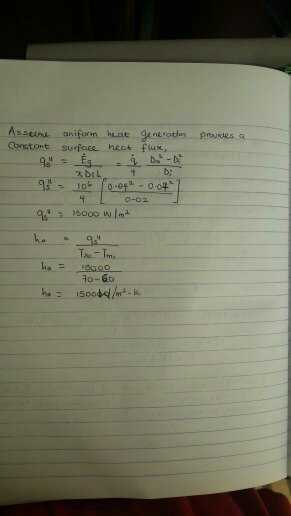 Assume uniform heat generation provides a
constant surface heat flux,
qs" = Ėg / π Di L = q̇ / 4 Do² - Di² / Di
qs" = 10⁶ / 4 [ 0.04² - 0.02² / 0.02 ]
qs" = 15000 W/m²
ho = qs" / Tso - Tmo
ho = 15000 / 70-60
ho = 1500 W/m²·K